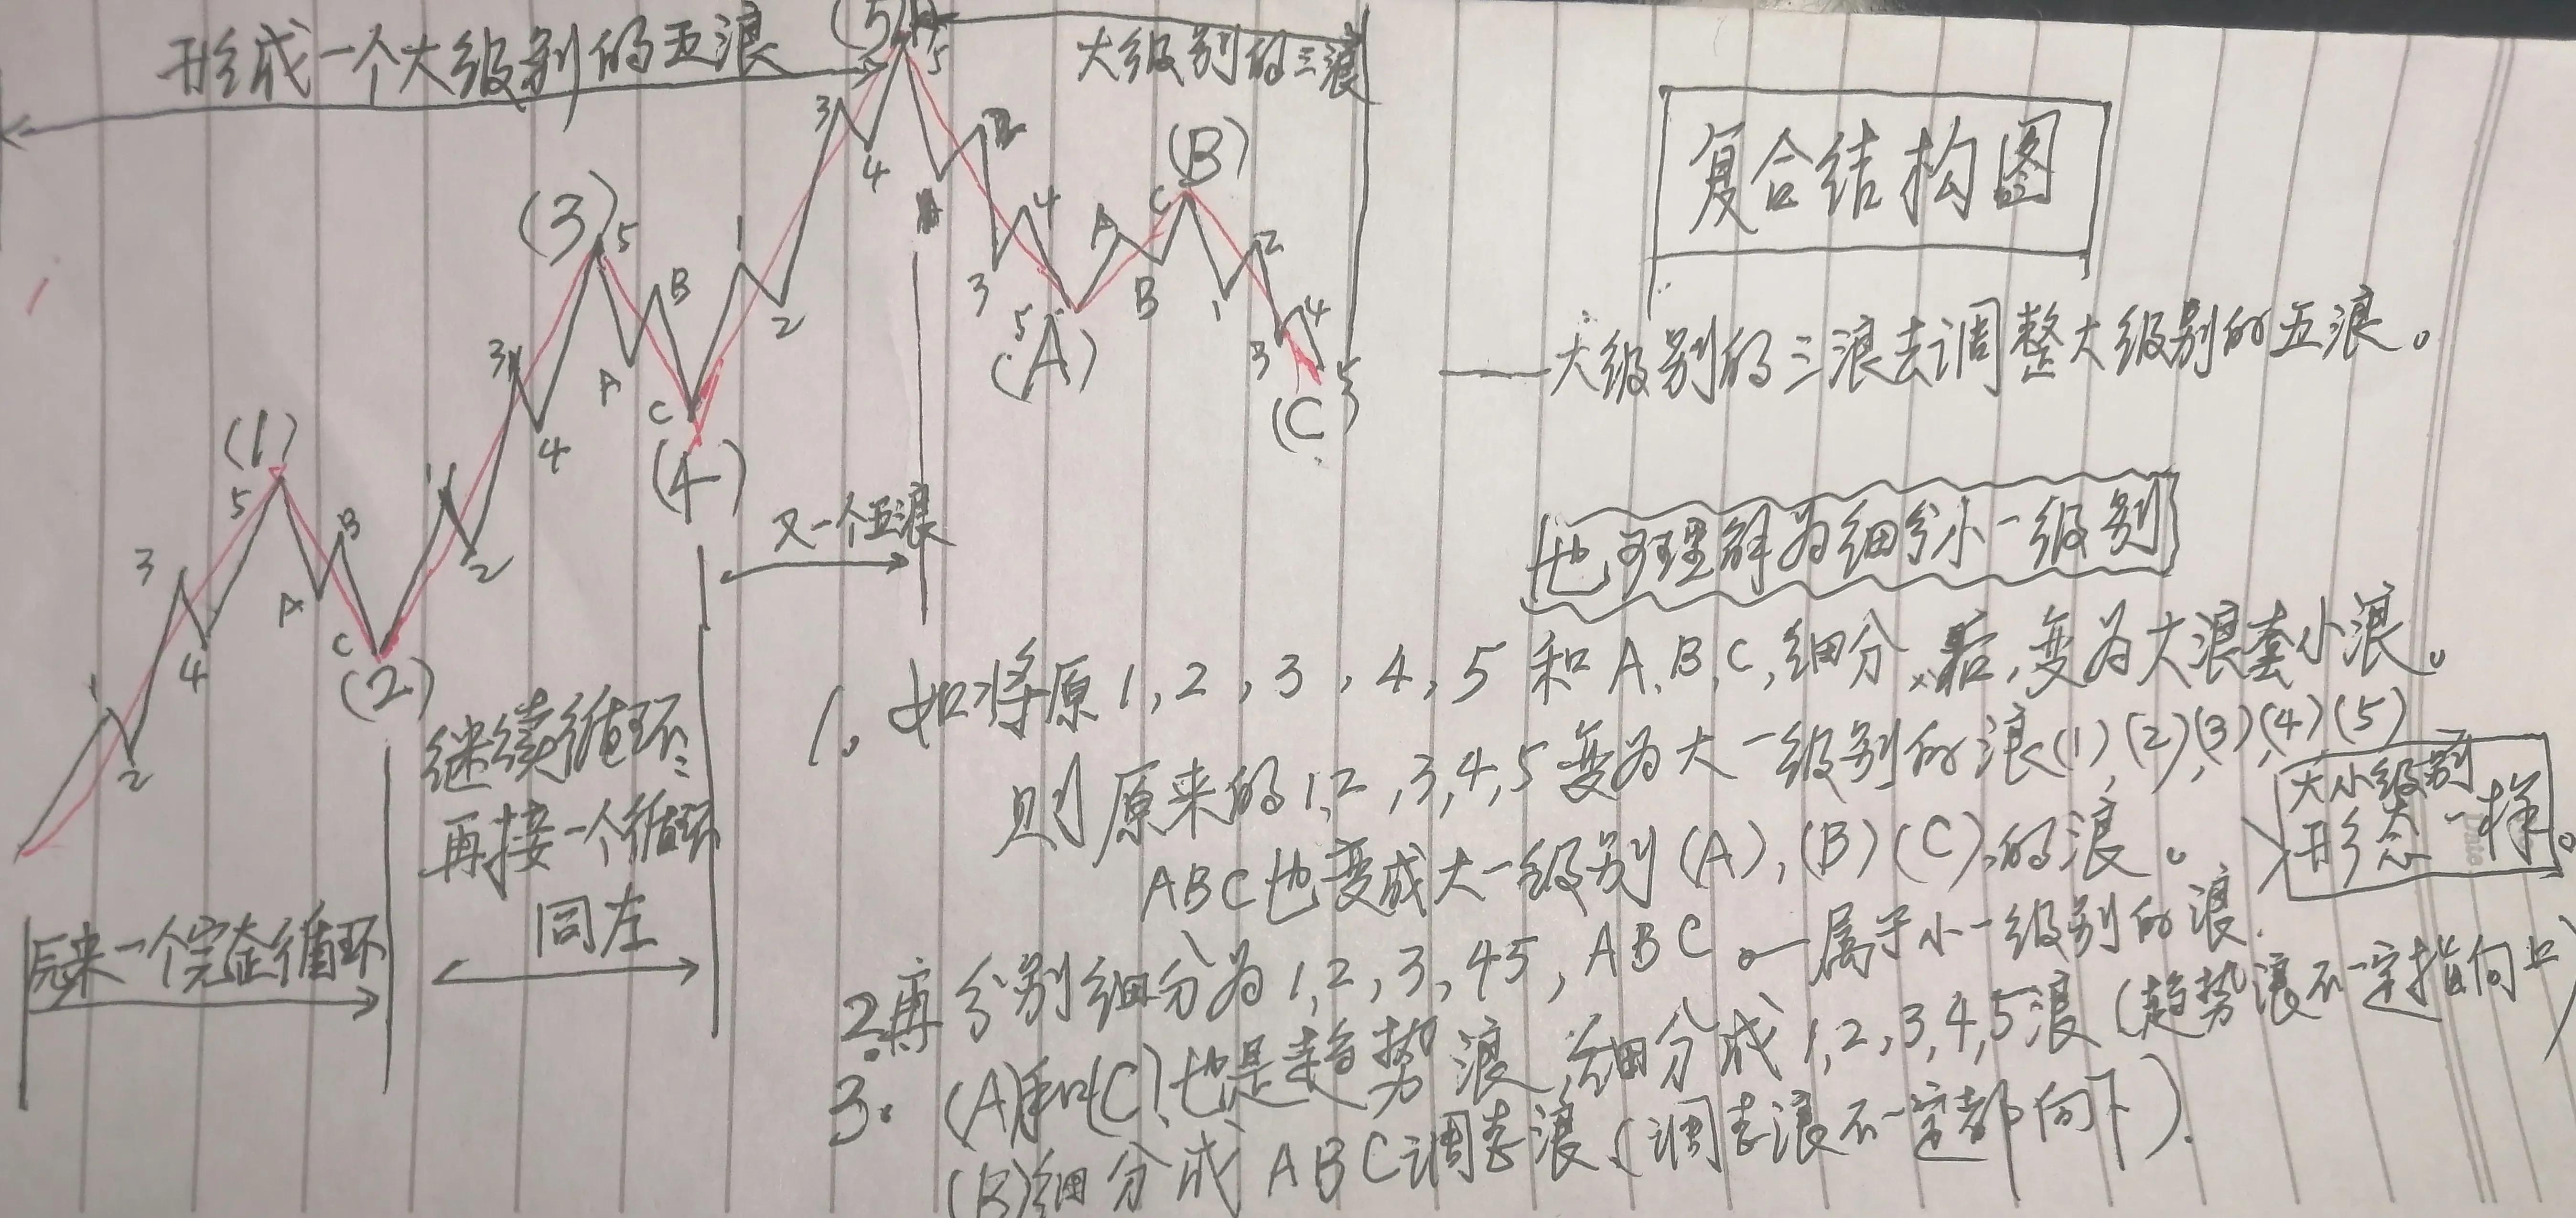 形成一个大级别的五浪
大级别的三浪
复合结构图
大级别的三浪去调整大级别的五浪。
也可理解为细分小一级别
(1)
(2)
(3)
(4)
(5)
(A)
(B)
(C)
1 2 3 4 5 A B C
1 2 3 4 5 A B C
1 2 3 4 5
B 3 4 5
A B C
1 2 3 4 5
原来一个完整循环
继续循环
再接一个循环
同左
又一个五浪
1。如将原1,2,3,4,5和A,B,C,细分后,变为大浪套小浪。
则原来的1,2,3,4,5变为大一级别的浪(1),(2),(3),(4)(5)
ABC也变成大一级别(A),(B)(C),的浪。
大小级别
形态一样。
2.再分别细分为1,2,3,45,ABC。—属于小一级别的浪.
3.(A)和(C)也是趋势浪,细分成1,2,3,4,5浪(趋势浪不一定指向上)
(B)细分成ABC调整浪(调整浪不一定都向下).